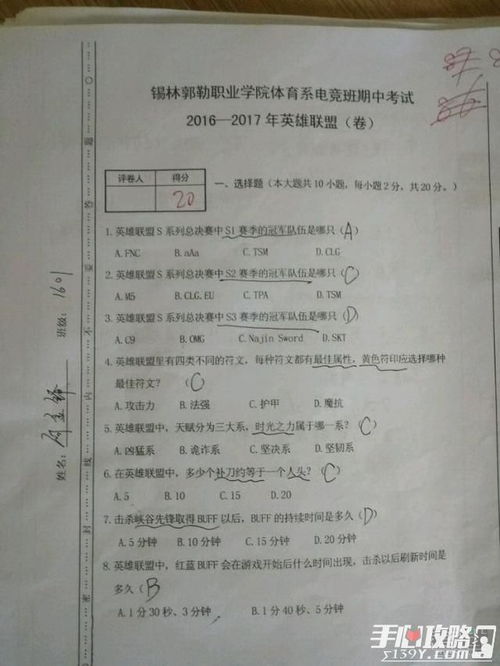 锡林郭勒职业学院体育系电竞班期中考试
2016—2017 年英雄联盟（卷）
评卷人 得分
20
一、选择题（本大题共 10 小题，每小题 2 分，共 20 分。）
1.英雄联盟 S 系列总决赛中 S1 赛季的冠军队伍是哪只（A）
A.FNC B.aAa C.TSM D.CLG
2.英雄联盟 S 系列总决赛中 S2 赛季的冠军队伍是哪只（C）
A.M5 B.CLG.EU C.TPA D.TSM
3.英雄联盟 S 系列总决赛中 S3 赛季的冠军队伍是哪只（D）
A.C9 B.OMG C.Najin Sword D.SKT
4.英雄联盟里有四类不同的符文，每种符文都有最佳属性，黄色符印应选择哪种
最佳符文？（C）
A.攻击力 B.法强 C.护甲 D.魔抗
5.英雄联盟中，天赋分为三大系，时光之力属于哪一系？（C）
A.凶猛系 B.诡诈系 C.坚决系 D.坚韧系
6.在英雄联盟中，多少个补刀约等于一个人头？（C）
A.5 B.10 C.15 D.20
7.击杀峡谷先锋取得 BUFF 以后，BUFF 的持续时间是多久（D）
A.5 分钟 B.10 分钟 C.15 分钟 D.20 分钟
8.英雄联盟中，红蓝 BUFF 会在游戏开始后什么时间出现，击杀以后刷新时间是
多久（B
A.1 分 30 秒、3 分钟 B.1 分 40 秒、5 分钟
班级：1601
姓名：
密 封 线 内 不 要 答 题
手心攻略
s139y.com